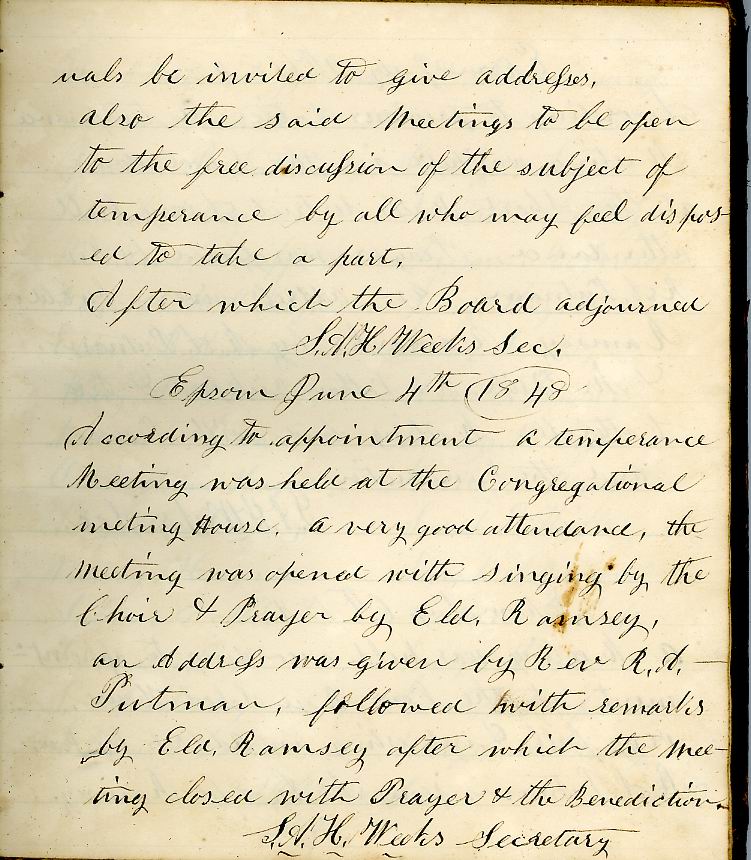 uals be invited to give addresses,
also the said Meetings to be open
to the free discussion of the subject of
temperance by all who may feel dispos-
ed to take a part.
After which the Board adjourned
S.A.H. Weeks Sec.
Epsom June 4th 1848
According to appointment a temperance
Meeting was held at the Congregational
meting House. a very good attendance, the
meeting was opened with singing by the
Choir & Prayer by Eld. Ramsey,
an Address was given by Rev R.A.
Putman, followed with remarks
by Eld. Ramsey after which the mee-
ting closed with Prayer & the Benediction.
S.A.H. Weeks Secretary